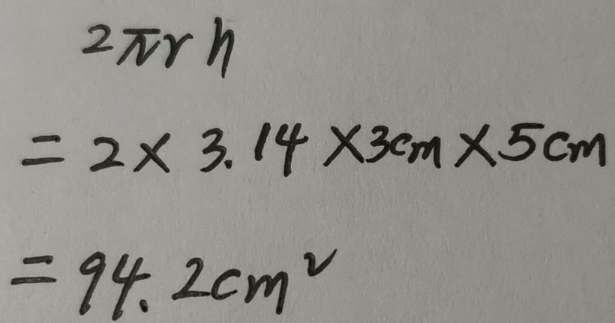 2πrh
= 2 × 3.14 × 3cm × 5cm
= 94.2cm²